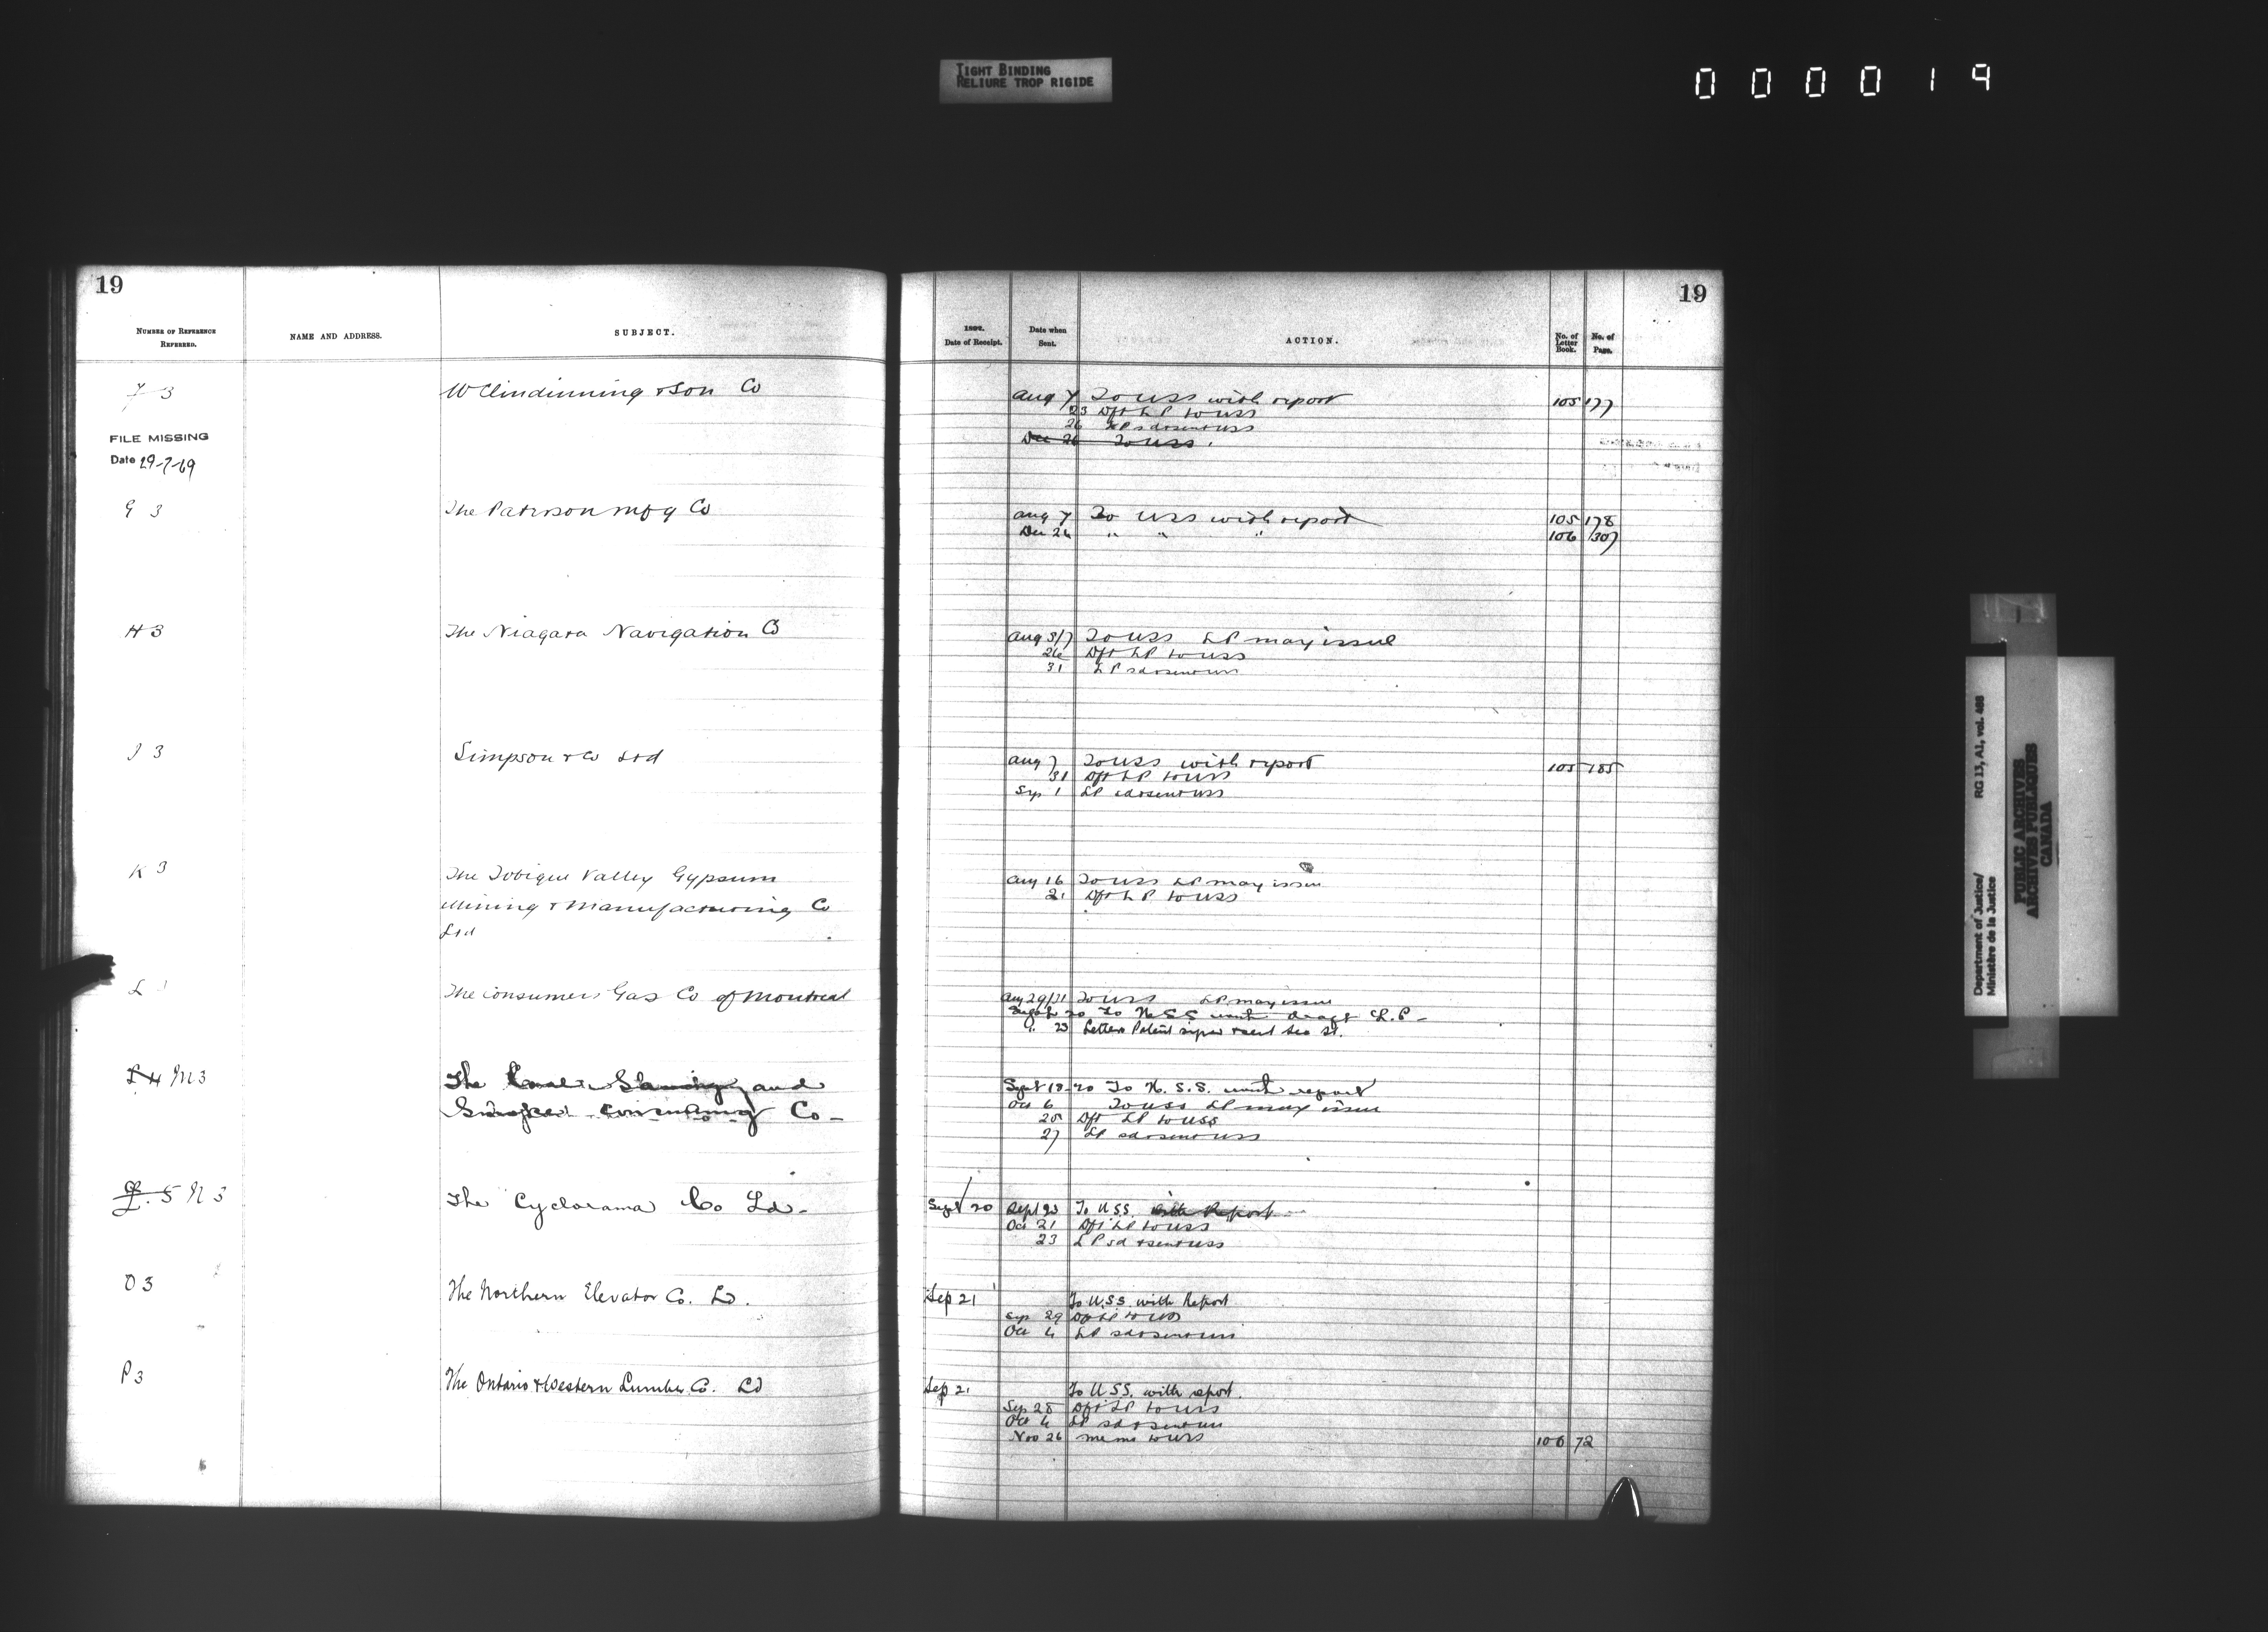 TIGHT BINDING
RELIURE TROP RIGIDE
000019
19
NUMBER OF REFERENCE
REFERRED.
NAME AND ADDRESS.
SUBJECT.
3
W Clindinning & Son Co
FILE MISSING
Date 29-7-69
G 3
The Paterson Mfg Co
H 3
The Niagara Navigation Co
J 3
Simpson & Co Ltd
K 3
The Tobique Valley Gypsum
Mining & Manufacturing Co
Ltd
L
The Consumers Gas Co of Montreal
M 3
The and
Co -
5 N 3
The Cyclorama Co Ld -
O 3
The Northern Elevator Co. Ld.
P 3
The Ontario & Western Lumber Co. Ld
19
1892.
Date of Receipt.
Date when
Sent.
ACTION.
No. of
Letter
Book.
No. of
Page.
Aug 7 To USS with report 105 177
23 Dft LP to USS
26 LP sd & sent USS
Dec 26 To USS.
Aug 7 To USS with report 105 178
Dec 26 " " " 106 307
Aug 5/7 To USS LP may issue
26 Dft LP to USS
31 LP sd & sent USS
Aug 7 To USS with report 105 185
31 Dft LP to USS
Sep 1 LP sd & sent USS
Aug 16 To USS LP may issue
21 Dft LP to USS
Aug 29/31 To USS LP may issue
Sept 20 To U.S.S. with draft L.P -
" 23 Letters Patent & sent
Sept 18-20 To U.S.S. with report
Oct 6 To USS LP may issue
25 Dft LP to USS
27 LP sd & sent USS
Sept 20 Sept 23 To U.S.S. with Report
Oct 21 Dft LP to USS
23 LP sd & sent USS
Sep 21 To U.S.S. with Report
Sep 29 Dft LP to USS
Oct 4 LP sd & sent USS
Sep 21 To U.S.S. with report.
Sep 28 Dft LP to USS
Oct 4 LP sd & sent USS
Nov 26 memo to USS 106 72
Department of Justice/ RG 13, A1, vol. 488
Ministère de la Justice
PUBLIC ARCHIVES
ARCHIVES PUBLIQUES
CANADA